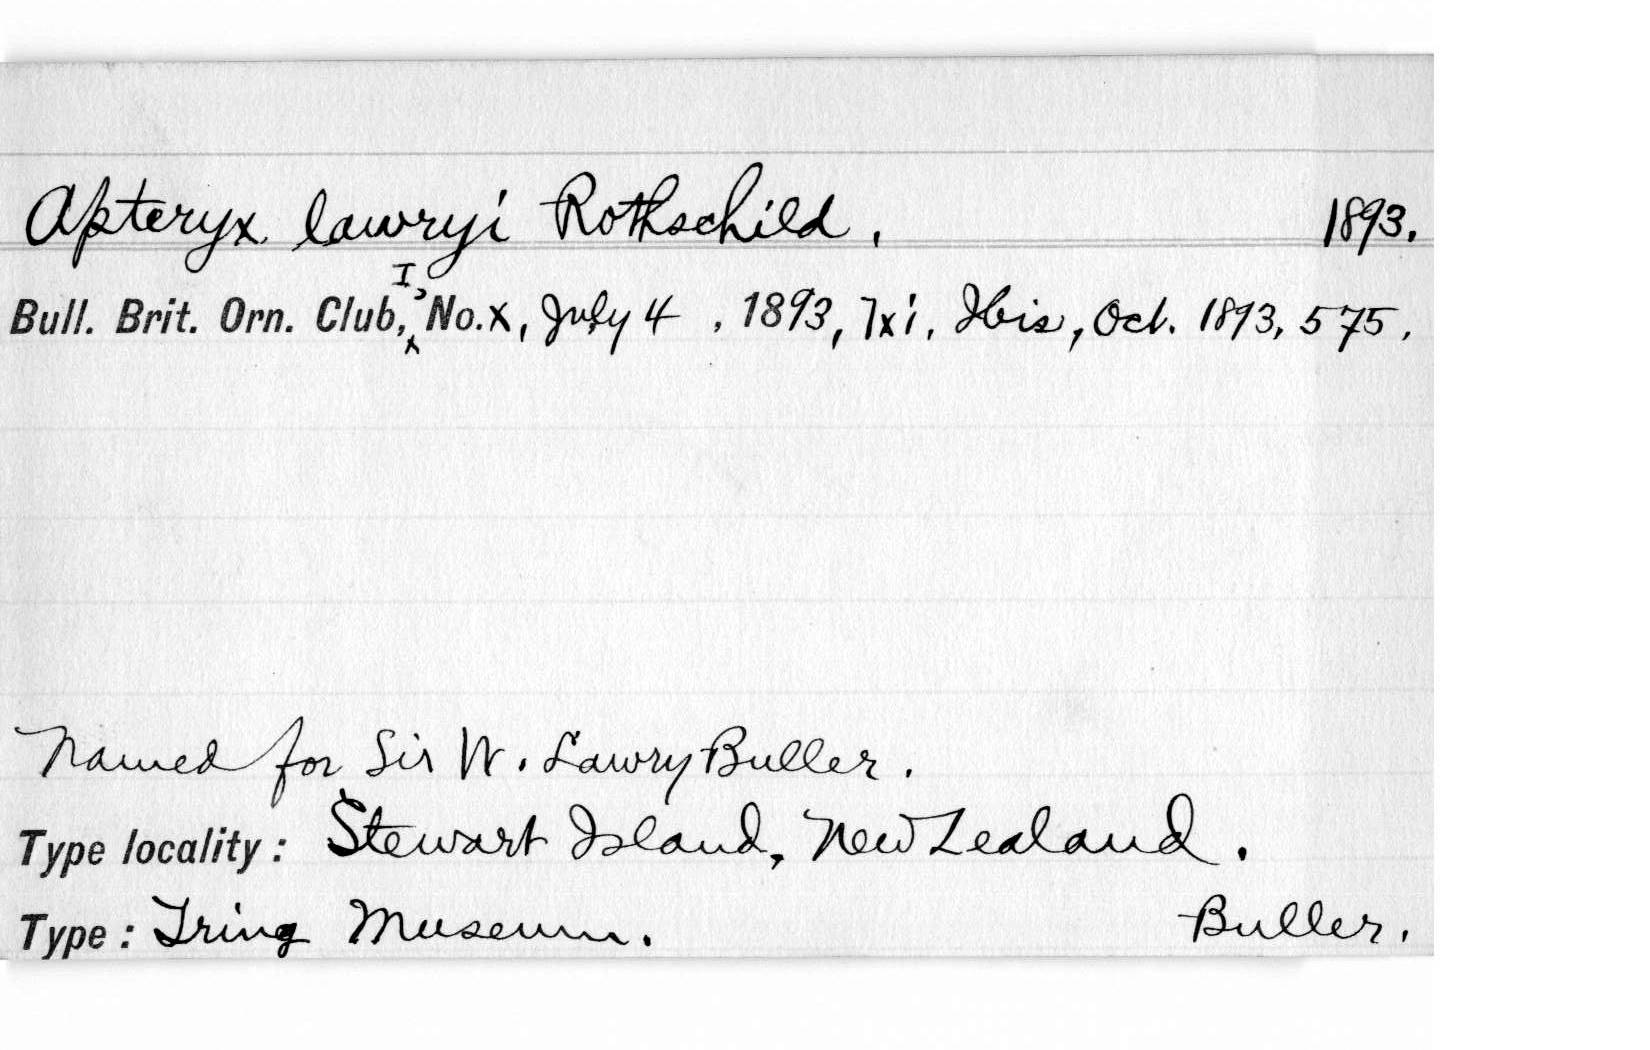 Apteryx lawryi Rothschild, 1893.
Bull. Brit. Orn. Club, I, No. x, July 4, 1893, lxi. Ibis, Oct. 1893, 575.
Named for Sir W. Lawry Buller.
Type locality: Stewart Island, New Zealand.
Type: Tring Museum. Buller.